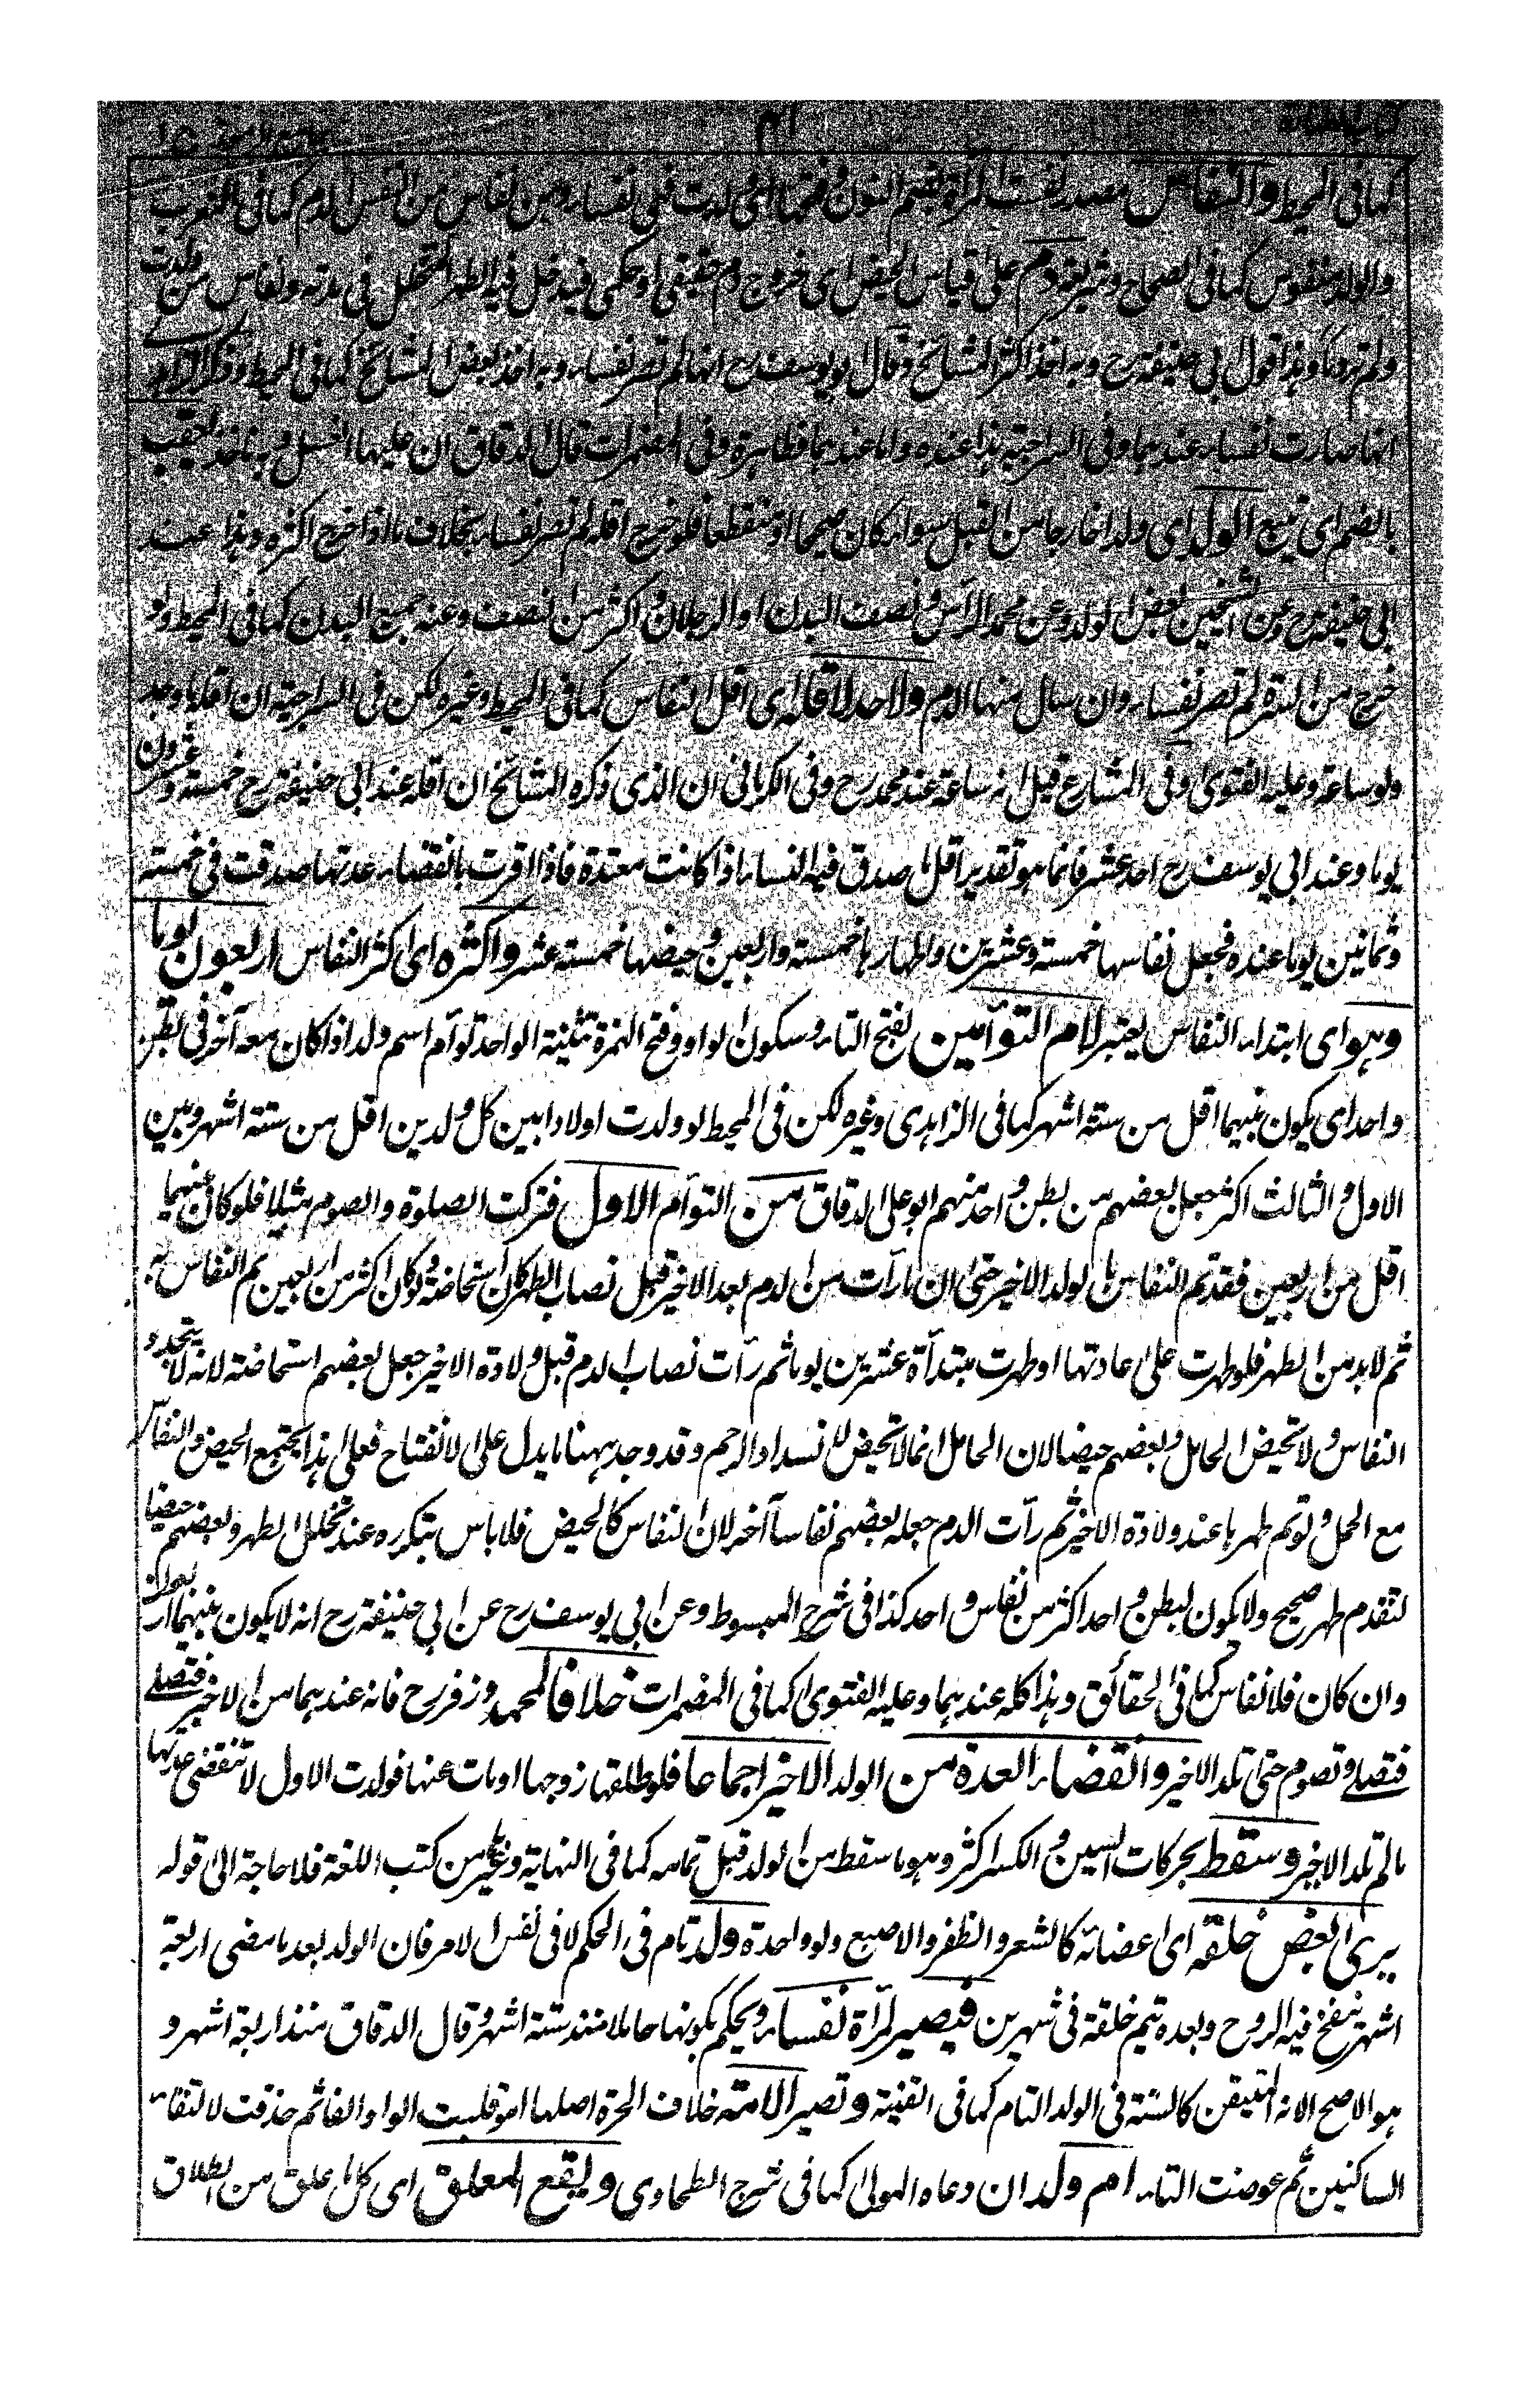 كتاب الطهارة
كما في المحيط والنفاس مصدر نفست المرأة بضم النون وفتحها اذا ولدت فهي نفساء وهن نفاس من النفس الدم كما في المغرب
والولد منفوس كما في الصحاح وشريعة دم على قياس الحيض اى خروج دم حقيقى او حكمى فيدخل فيه الطهر المتخلل فى مدته ونفاس من ولدت
ولم تر دما وهذا قول ابي حنيفة رح وبه اخذ اكثر المشائخ وقال ابو يوسف رح انها لم تصر نفساء وبه اخذ بعض المشائخ كما فى المحيط
انها صارت نفساء عندهما وفى السراجية هذا عنده واما عندهما فطاهرة وفى المضمرات قال الدقاق ان عليها الغسل وبه ناخذ يعقب
بالضم اى يتبع الولد اى ولدا خارجا من القبل سواء كان صحيحا او منقطعا فلو خرج اقله لم تصر نفساء بخلاف ما اذا خرج اكثره وهذا عند
ابى حنيفة رح وعن الشيخين بعض الولد وعن محمد الراس ونصف البدن او الرجلان واكثر من النصف وعنه جميع البدن كما فى المحيط ولو
خرج من السرة لم تصر نفساء وان سال منها الدم ولا حد لاقله اى اقل النفاس كما فى المحيط وغيره لكن فى السراجية ان اقله ما وجد
ولو ساعة وعليه الفتوى وفى المشارع قيل انه ساعة عند محمد رح وفى الكرمانى ان الذى ذكره المشائخ ان اقله عند ابى حنيفة رح خمسة وعشرون
يوما وعند ابى يوسف رح احد عشر فانما هو تقدير اقل ما صدق فيه النساء اذا كانت معتدة فاذا اقرت بانقضاء عدتها صدقت فى خمسة
وثمانين يوما عنده فجعل نفاسها خمسة وعشرين واطهارها خمسة واربعين وحيضها خمسة عشر واكثره اى اكثر النفاس اربعون يوما
وهو اى ابتداء النفاس يعتبر لام التوأمين بفتح التاء وسكون الواو وفتح الهمزة تثنية الواحد توأم اسم ولد اذا كان معه آخر فى بطن
واحد اى يكون بينهما اقل من ستة اشهر كما فى الزاهدى وغيره لكن فى المحيط لو ولدت اولادا بين كل ولدين اقل من ستة اشهر وبين
الاول والثالث اكثر جعل بعضهم من بطن واحد منهم ابو على الدقاق من التوأم الاول فتركت الصلوة والصوم مثلا فلو كان بينهما
اقل من اربعين فقد تم النفاس بالولد الاخير حتى ان ما رأت من الدم بعد الاخير قبل نصاب الطهر كان استحاضة ولو كان اكثر من اربعين تم النفاس به
ثم لا بد من الطهر فلو طهرت على عادتها او طهرت مبتدأة عشرين يوما ثم رأت نصاب الدم قبل ولادة الاخير جعل بعضهم استحاضة لانه لا يتجدد
النفاس ولا تحيض الحامل وبعضهم حيضا لان الحامل انما لا تحيض لانسداد الرحم وقد وجد ههنا ما يدل على الانفتاح فعلى هذا يجتمع الحيض والنفاس
مع الحمل ولو تم طهرها عند ولادة الاخير ثم رأت الدم جعله بعضهم نفاسا آخر لان النفاس كالحيض فلا باس بتكرره عند تخلل الطهر وبعضهم حيضا
لتقدم طهر صحيح ولا يكون لبطن واحد اكثر من نفاس واحد كذا فى شرح المبسوط وعن ابي يوسف رح عن ابي حنيفة رح انه لا يكون بينهما اربعون
وان كان فلا نفاس كما فى الحقائق وهذا كله عندهما وعليه الفتوى كما فى المضمرات خلافا لمحمد وزفر رح فانه عندهما من الاخير فتصلى
فتصلى وتصوم حتى تلد الاخير وانقضاء العدة من الولد الاخير اجماعا فلو طلقها زوجها او مات عنها فولدت الاول لا تنقضى عدتها
ما لم تلد الاخير وسقط بحركات السين والكسر اكثر وهو ما سقط من الولد قبل تمامه كما فى النهاية وغيره من كتب اللغة فلا حاجة الى قوله
يرى بعض خلقه اى اعضائه كالشعر والظفر والاصبع ولو واحدة ولد تام فى الحكم لا فى نفس الامر فان الولد بعد ما مضى اربعة
اشهر ينفخ فيه الروح وبعده يتم خلقه فى شهرين فيصير المرأة نفساء ويحكم بكونها حاملا منذ ستة اشهر وقال الدقاق منذ اربعة اشهر و
هو الاصح الا انه المتيقن كالستة فى الولد التام كما فى القنية وتصير الامة خلاف الحرة اصلها امو قلبت الواو الفا ثم حذفت لالتقاء
الساكنين ثم عوضت التاء ام ولد ان دعاه المولى كما فى شرح الطحاوى ويقع المعلق اى كل ما علق من الطلاق